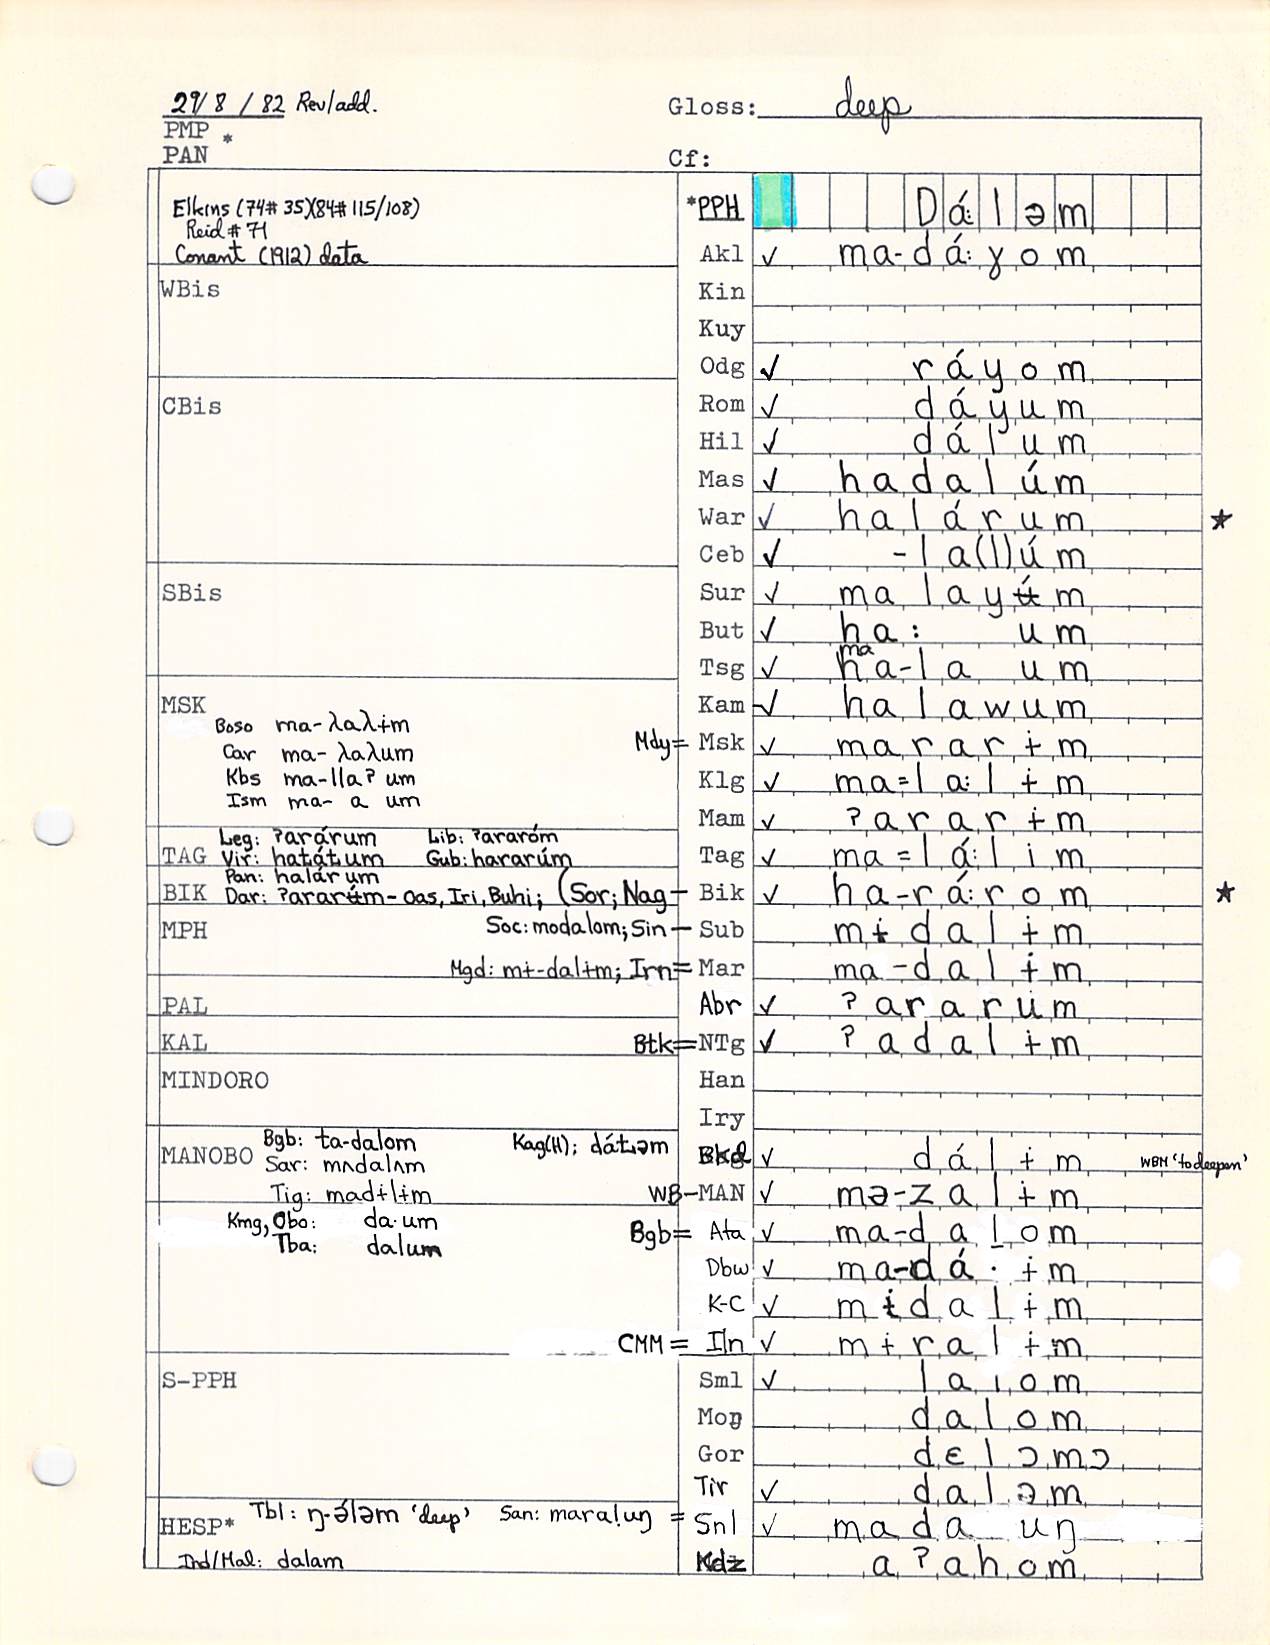 29/8/82 Rev/add. Gloss: deep
PMP *
PAN Cf:
Elkins (74# 35)(84# 115/108)
Reid # 71
Conant (1912) data
*PPH Dá:ləm
Akl ✓ ma-dá:ɣom
WBis Kin
Kuy
Odg ✓ ráyom
CBis Rom ✓ dáyum
Hil ✓ dálum
Mas ✓ hadalúm
War ✓ halárum ★
Ceb ✓ -la(l)úm
SBis Sur ✓ malayʉ́m
But ✓ ha: um
Tsg ✓ ha-la um
ma
MSK Kam ✓ halawum
Boso ma-λaλɨm
Car ma-λaλum Mdy= Msk ✓ mararɨm
Kbs ma-lla?um Klg ✓ ma=la:lɨm
Ism ma- a um
Mam ✓ ?ararɨm
Leg: ?arárum Lib: ?araróm
TAG Vir: hatátum Gub: hararúm Tag ✓ ma=lá:lim
Pan: halárum
BIK Dar: ?ararʉ́m- Oas, Iri, Buhi; (Sor; Nag- Bik ✓ ha-rá:rom ★
MPH Soc: modalom; Sin- Sub mɨdalɨm
Mgd: mɨ-dalɨm; Irn= Mar ma-dalɨm
PAL Abr ✓ ?ararum
KAL Btk= NTg ✓ ?adalɨm
MINDORO Han
Iry
MANOBO Bgb: ta-dalom Kag(H); dátəm Bkd ✓ dálɨm WBM 'to deepen'
Sar: mʌdalʌm
Tig: madɨlɨm WB-MAN ✓ mə-zalɨm
Kmg, Obo: da·um Bgb= Ata ✓ ma-dalom
Tba: dalum
Dbw ✓ ma-dá·ɨm
K-C ✓ mɨdalɨm
CMM= Iln ✓ mɨralɨm
S-PPH Sml ✓ lalom
Moŋ dalom
Gor dɛlɔmɔ
Tir ✓ daləm
HESP* Tbl: ŋ-ə́ləm 'deep' San: maraḷuŋ = Snl ✓ mada uŋ
Ind/Mal: dalam Kdz a?ahom